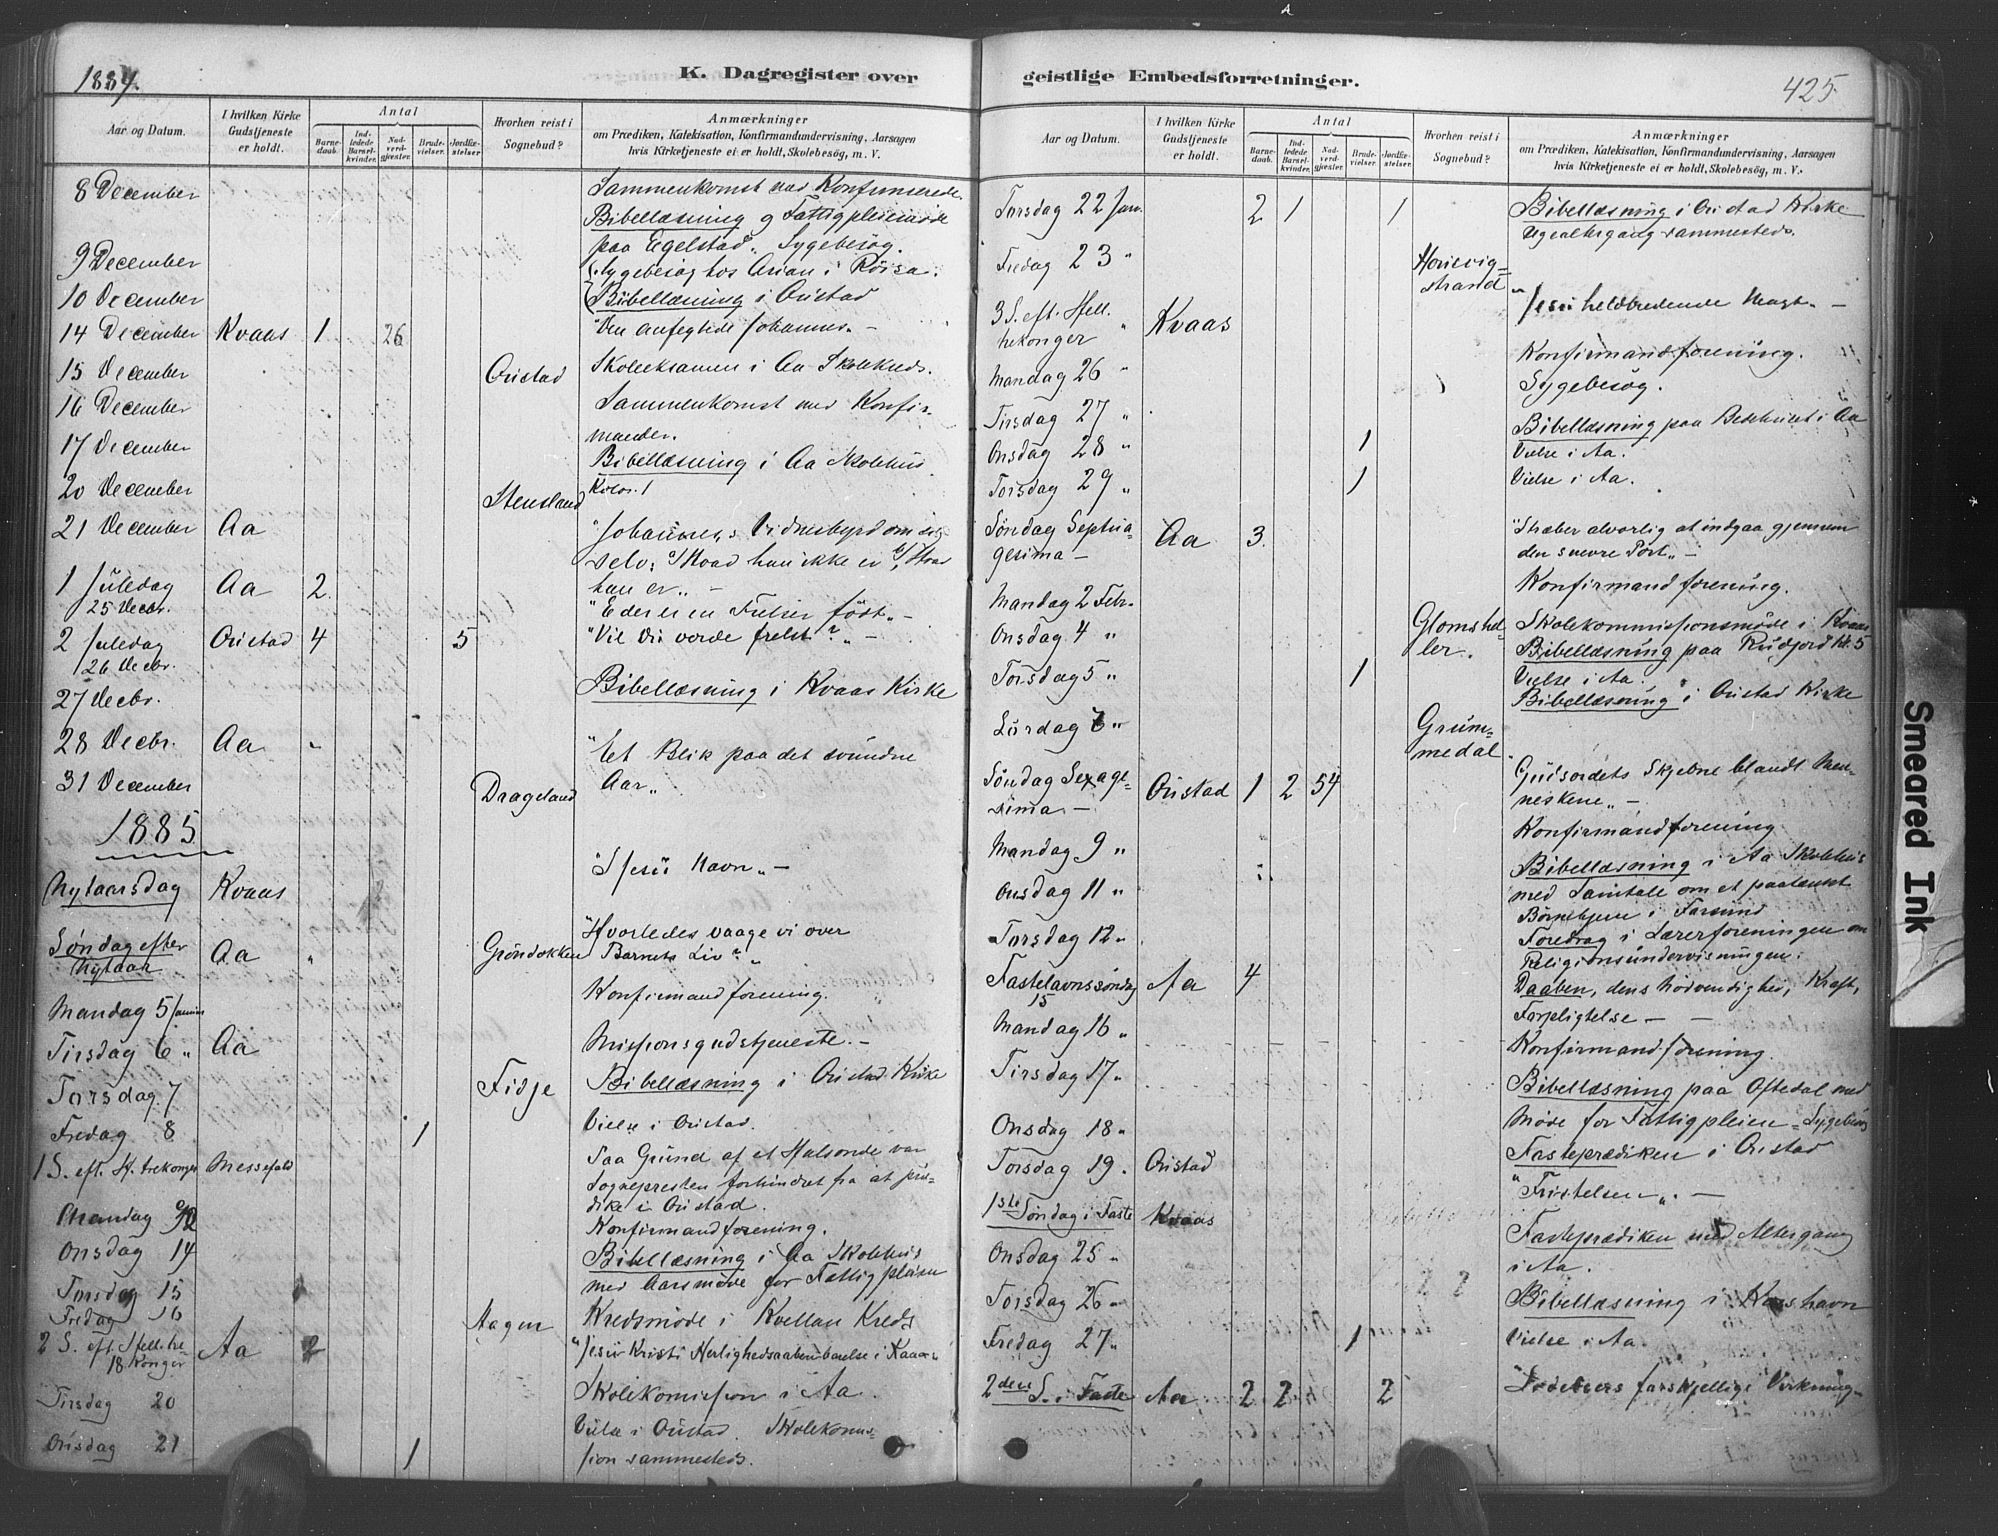 1884.
K. Dagregister over
Aar og Datum.
I hvilken Kirke Gudstjeneste er holdt.
Antal
Barnedaab.
Indledede Barselkvinder.
Nadverdgjester.
Brudevielser.
Jordfæstelser
Hvorhen reist i Sognebud?
Anmærkninger
om Prædiken, Katekisation, Konfirmandundervisning, Aarsagen
hvis Kirketjeneste ei er holdt, Skolebesøg, m. V.
8 December Sammenkomst med Konfirmerede.
Bibellæsning og Fattigpleiemøde
paa Egelstad. Sygebesøg.
9 December Sygebesøg hos Arian i Röisa.
10 December Bibellæsning i Oustad
14 December Kvaas 1 26 "Den anfegtede Johannes" –
15 December Oustad Skoleeksamen i Aa Skolekreds.
16 December Sammenkomst med Konfirmander.
17 December Bibellæsning i Aa Skolehus
20 December Stensland
21 December Aa "Johannes's Vidnesbyrd om sig
selv: a/ Hvad han ikke er b/ Hvad
han er" –
1 Juledag Aa 2
25 Decbr. "Eder er en Frelser født" –
2 Juledag Oustad 4 5 "Vil Du vorde frelst?" –
26 Decbr.
27 Decbr. Bibellæsning i Kvaas Kirke
28 Decbr. Aa " "Et Blik paa det svundne
Aar"
31 December Drageland
1885
Nytaarsdag Kvaas "I Jesu Navn" –
Søndag efter
Nytaar Aa " Gröndokken "Hvorledes vaage vi over
Barnets Liv?"
Mandag 5 Januar Konfirmandforening.
Tirsdag 6 " Aa Missionsgudstjeneste. –
Torsdag 7 Fidje Bibellæsning i Oustad Kirke
Fredag 8 1 Vielse i Oustad.
1 S. eft. H. trekonger Messefald Paa Grund af et Halsonde var
Sognepresten forhindret fra at præ-
dike i Oustad.
Mandag 12 Konfirmandforening.
Onsdag 14 Bibellæsning i Aa Skolehus
med Aarsmøde for Fattigpleien
Torsdag 15
Fredag 16 Kredsmøde i Kvellan Kreds
2 S. eft. Hell. tre-
18 konger Aa 2 "Jesu Kristi Herlighedsaabenbarelse i Kana"
Tirsdag 20 Skolekomission i Aa.
Onsdag 21 1 Vielse i Oustad. Skolekomis-
sion sammesteds.
geistlige Embedsforretninger.
425
Aar og Datum.
I hvilken Kirke Gudstjeneste er holdt.
Antal
Barnedaab.
Indledede Barselkvinder.
Nadverdgjester.
Brudevielser.
Jordfæstelser.
Hvorhen reist i Sognebud?
Anmærkninger
om Prædiken, Katekisation, Konfirmandundervisning, Aarsagen
hvis Kirketjeneste ei er holdt, Skolebesøg, m. V.
Torsdag 22 Jan. 2 1 1 Bibellæsning i Oustad Kirke
Ugealtergang sammesteds.
Fredag 23 "
3 S. eft. Hell.
trekonger " Kvaas "Jesu helbredende Magt" –
Mandag 26 " Konfirmandforening.
Sygebesøg.
Tirsdag 27 " Bibellæsning paa Bedehuset i Aa
Onsdag 28 " 1 Vielse i Aa.
Torsdag 29 " 1 Vielse i Aa.
Søndag Septua-
gesima – Aa 3. "Stræber alvorlig at indgaa gjennem
den snevre Port" –
Mandag 2 Febr. Konfirmandforening.
Onsdag 4 " Glomshel-
ler. Skolekommissionsmøde i Kvaas
Bibellæsning paa Rudjord Kl. 5
Torsdag 5 " 1 Vielse i Aa.
Bibellæsning i Oustad Kirke
Lørdag 7 " Grum-
medal
Søndag Sexage-
sima – Oustad 1 2 54 Gudsordets Skjebne blandt Men-
neskene" –
Mandag 9 " Konfirmandforening
Onsdag 11 " Bibellæsning i Aa Skolehus
med Samtale om et paatænkt
Børnehjem i Farsund
Torsdag 12 " Foredrag i Lærerforeningen om
Religionsundervisningen.
Fastelavnssøndag
15 Aa 4 Daaben, dens Nødvendighed, Kraft,
Forpligtelse – –
Mandag 16 " Konfirmandforening.
Tirsdag 17 " Bibellæsning paa Oftedal med
Møde for Fattigpleien – Sygebesøg
Onsdag 18 "
Torsdag 19. Oustad Fasteprædiken i Oustad
1ste Søndag i Faste Kvaas "Fristelsen" –
Onsdag 25 " Fasteprædiken med Altergang
i Aa.
Torsdag 26 " Bibellæsning i Korshavn
Fredag 27 " 1 Vielse i Aa.
2den S. i Faste Aa 2 2 2 forskjellige Virkning
Smeared Ink